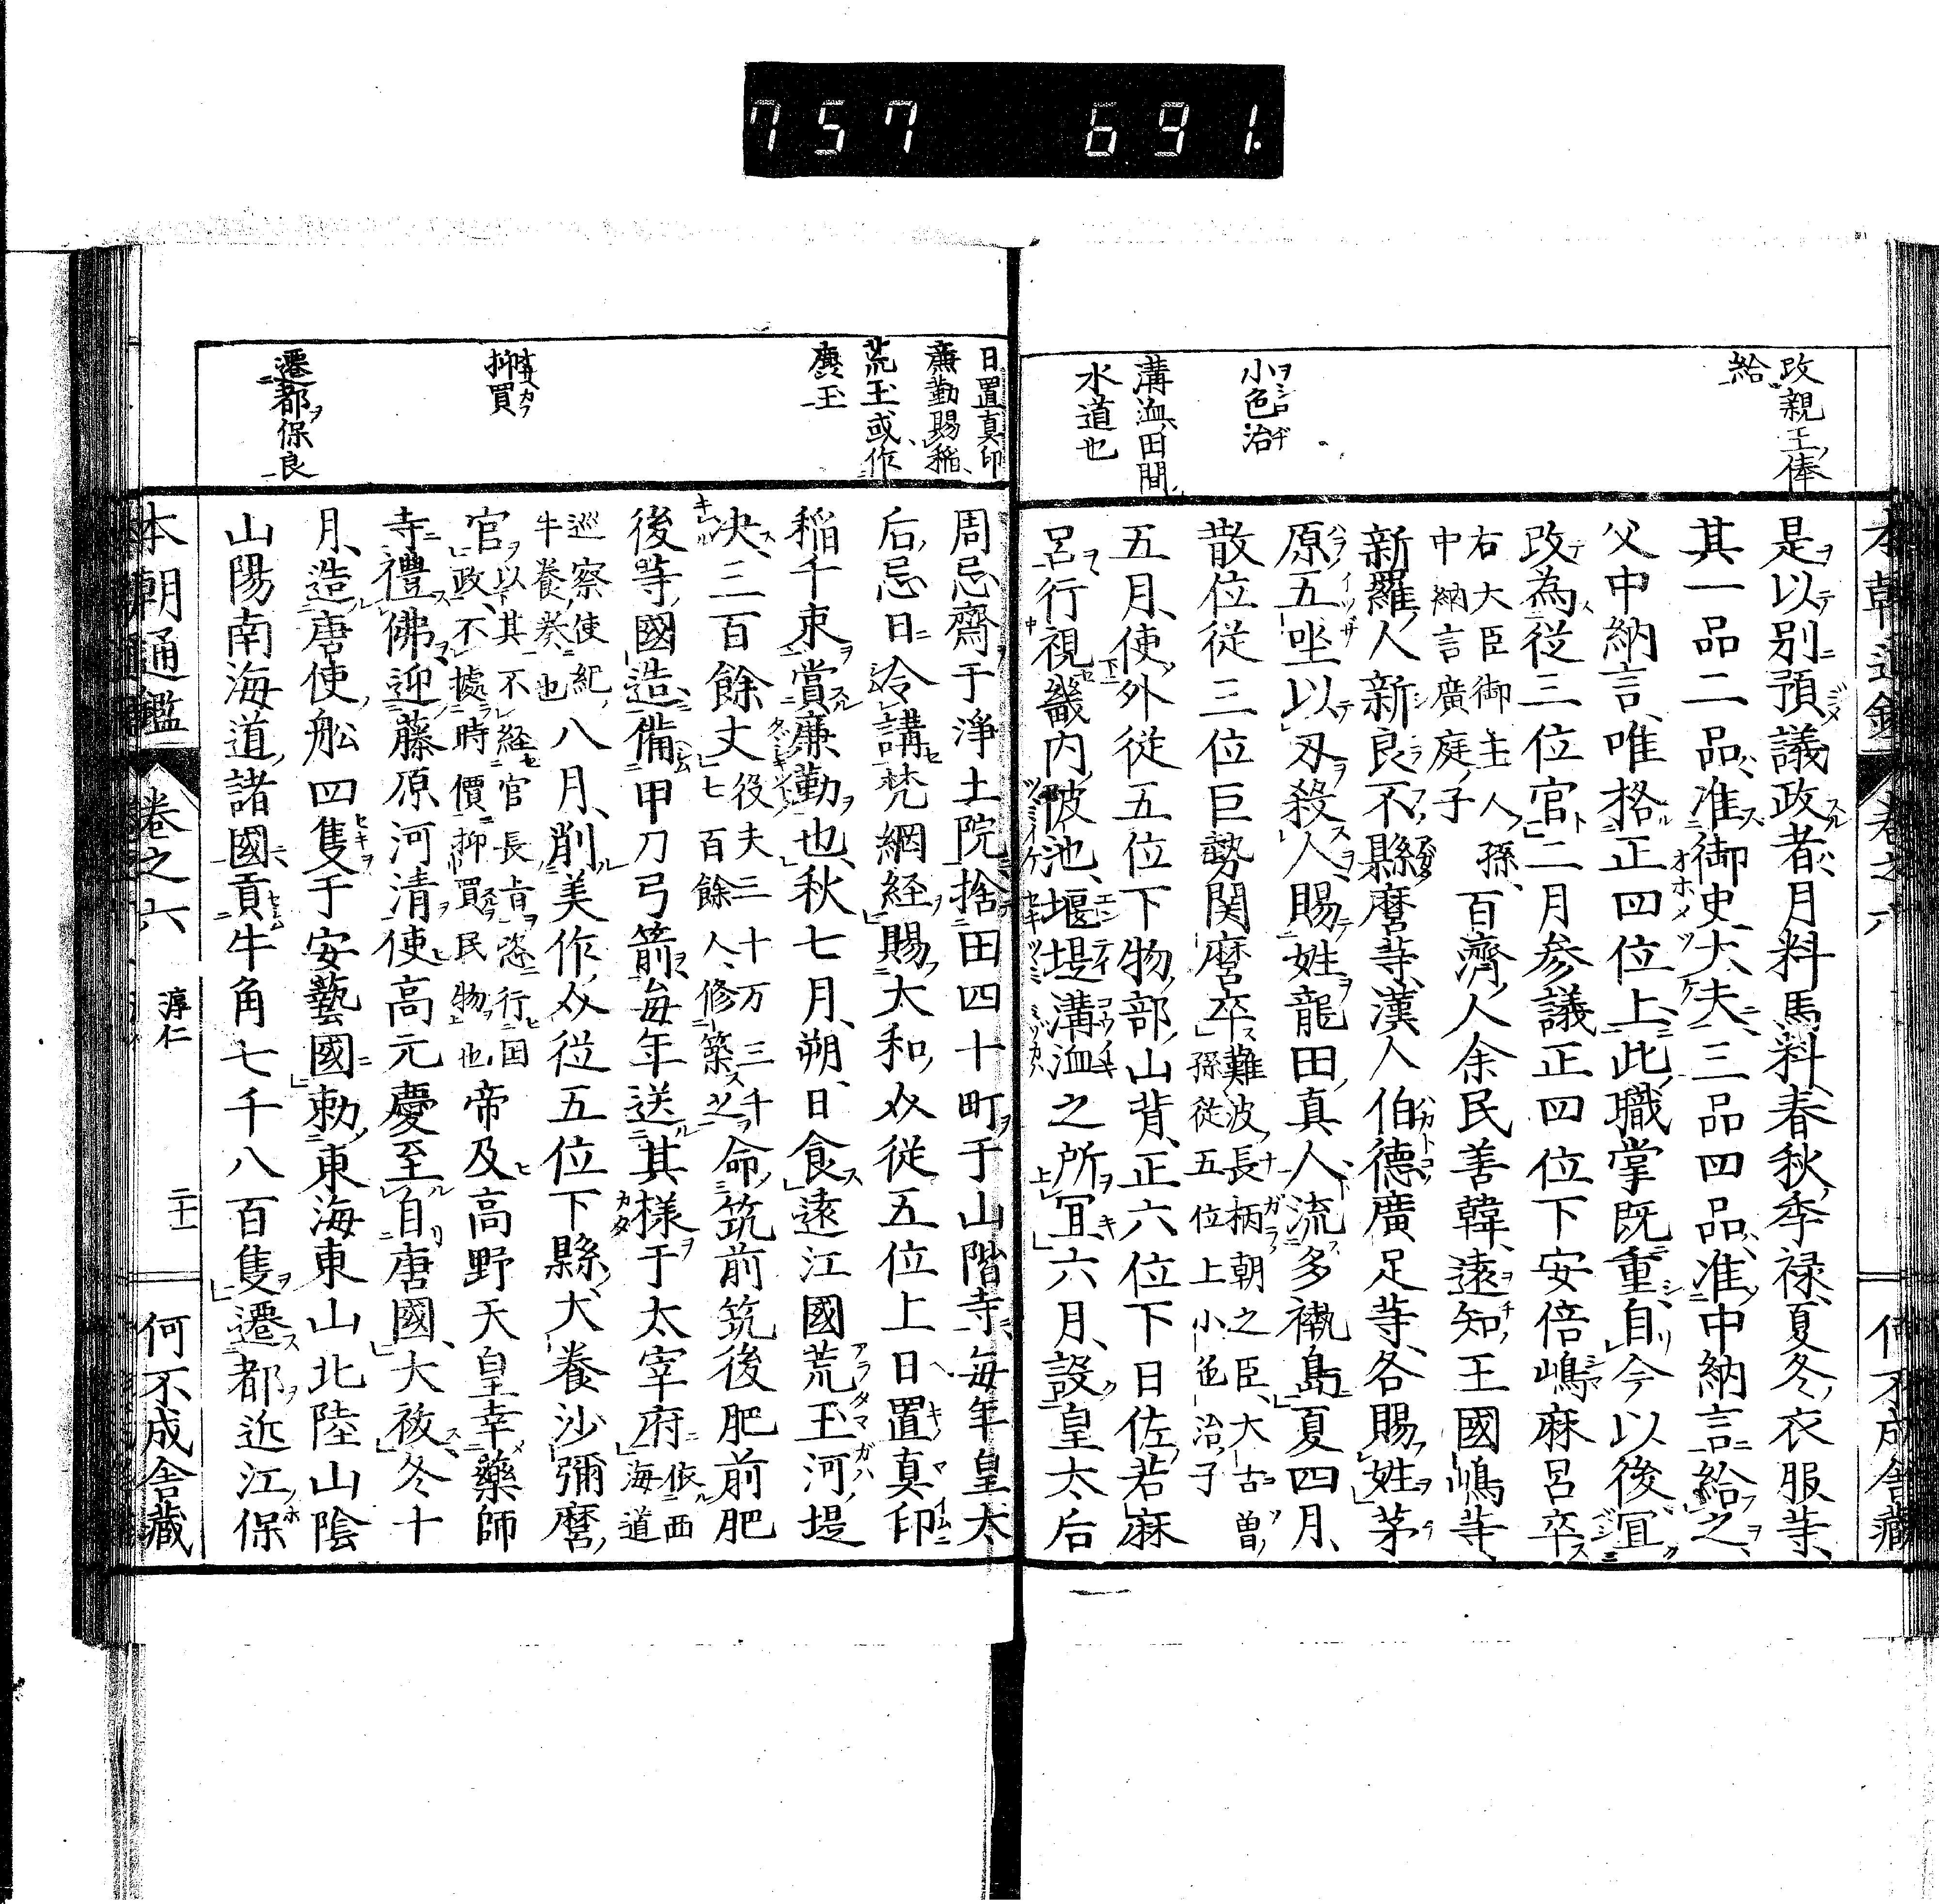 757 691.
改親王俸
給
小色治
溝洫田間
水道也
是以別預議政者月料馬料春秋季禄夏冬衣服䓁
其一品二品准御史大夫三品四品准中納言給之
父中納言唯格正四位上此職掌既重自今以後冝
改為従三位官二月参議正四位下安倍嶋麻呂卒
右大臣御主人孫
中納言廣庭子
百濟人余民善韓遠知王國嶋䓁
新羅人新良不縣麿䓁漢人伯德廣足䓁各賜姓茅
原五坐以刄殺人賜姓龍田真人流多褹島夏四月
散位従三位巨勢関麿卒
難波長柄朝之臣大古曽
孫従五位上小色治子
五月使外従五位下物部山背正六位下日佐若麻
呂行視畿内陂池堰堤溝洫之所冝六月設皇太后
日置真印
廉勤賜稲
荒玉或作
麁玉
抑買
遷都保良
周忌齋于淨土院捨田四十町于山階寺毎年皇太
后忌日令講梵網経賜大和㕝従五位上日置真印
稲千束賞廉勤也秋七月朔日食遠江國荒玉河堤
决三百餘丈
役夫三十万三千
七百餘人修築之
命筑前筑後肥前肥
後䓁國造備甲刀弓箭毎年送其様于太宰府
依西
海道
巡察使紀
牛養奏也
八月削美作㕝従五位下縣犬養沙彌麿
官
以其不経官長恣行国
政不據時價抑買民物也
帝及高野天皇幸藥師
寺禮佛迎藤原河清使高元慶至自唐國大祓冬十
月造唐使舩四隻于安藝國勅東海東山北陸山陰
山陽南海道諸國貢牛角七千八百隻遷都近江保
本朝通鑑 卷之六 淳仁 二十 何不成舎藏